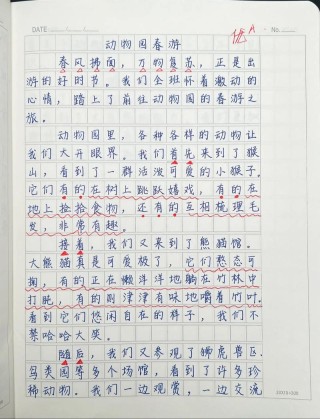 DATE
优A
No.
动物园春游
春风拂面，万物复苏，正是出
游的好时节。我们全班怀着激动的
心情，踏上了前往动物园的春游之
旅。
动物园里，各种各样的动物让
我们大开眼界。我们首先来到了猴
山，看到了一群活泼可爱的小猴子。
它们有的在树上跳跃嬉戏，有的在
地上捡拾食物，还有的互相梳理毛
发，非常有趣。
接着，我们又来到了熊猫馆。
大熊猫真是可爱极了，它们憨态可
掬，有的正在懒洋洋地躺在竹林中
打盹，有的则津津有味地嚼着竹叶。
看到它们悠闲自在的样子，我们不
禁哈哈大笑。
随后，我们又参观了狮虎兽区、
鸟类园等多个场馆，看到了许多珍
稀动物。我们一边观赏，一边交流